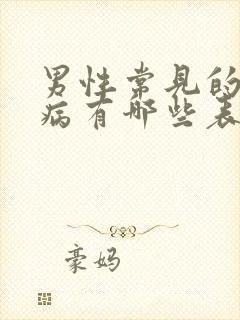 男性常见的
病有哪些表
豪妈